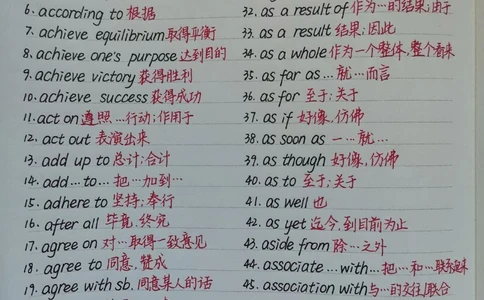 6. according to 根据
7. achieve equilibrium 取得平衡
8. achieve one's purpose 达到目的
9. achieve victory 获得胜利
10. achieve success 获得成功
11. act on 遵照…行动;作用于
12. act out 表演出来
13. add up to 总计;合计
14. add…to… 把…加到…
15. adhere to 坚持;奉行
16. after all 毕竟,终究
17. agree on 对…取得一致意见
18. agree to 同意,赞成
19. agree with sb. 同意某人的话
32. as a result of 作为…的结果;由于
33. as a result 结果;因此
34. as a whole 作为一个整体,整个看来
35. as far as … 就…而言
36. as for 至于;关于
37. as if 好像,仿佛
38. as soon as 一…就…
39. as though 好像,仿佛
40. as to 至于;关于
41. as well 也
42. as yet 迄今,到目前为止
43. aside from 除…之外
44. associate …with… 把…和…联系起来
45. association with 与…的交往;联合